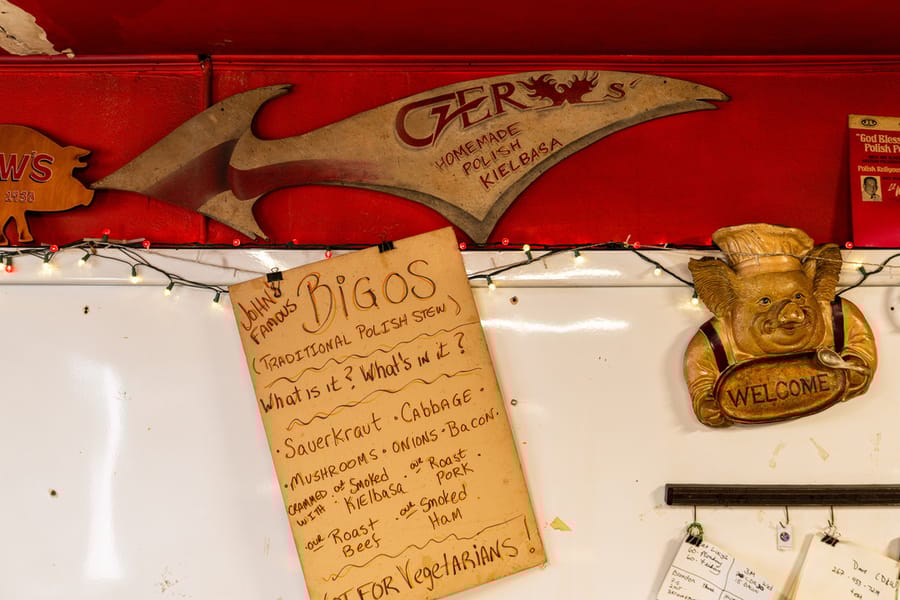 CZERW'S
HOMEMADE
POLISH
KIELBASA
W'S
1938
"God Bless
Polish P
Polish Religious
JOHN'S
FAMOUS
BIGOS
(TRADITIONAL POLISH STEW)
What is it? What's in it?
· Sauerkraut · Cabbage ·
· MUSHROOMS · ONIONS · Bacon ·
CRAMMED WITH · our Smoked Kielbasa · our Roast Pork
· our Roast Beef · our Smoked Ham ·
OT FOR VegetARIANS!
WELCOME